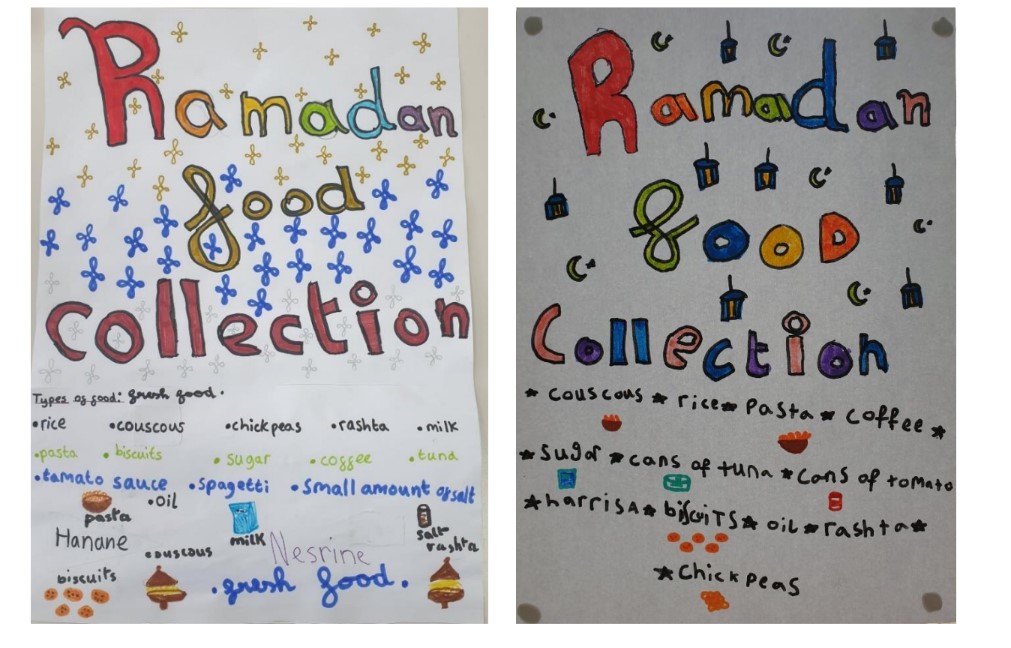 Ramadan
food
collection
Types of food: fresh food.
•rice •couscous •chickpeas •rashta •milk
•pasta •biscuits •sugar •coffee •tuna
•tamato sauce •spagetti •small amount of salt
•oil
pasta milk salt
Hanane •couscous Nesrine rashta
biscuits •fresh food.
Ramadan
food
Collection
★ couscous ★ rice ★ Pasta ★ coffee ★
★ sugar ★ cans of tuna ★ cans of tomato
★ harrisa ★ biscuits ★ oil ★ rashta ★
★ chickpeas